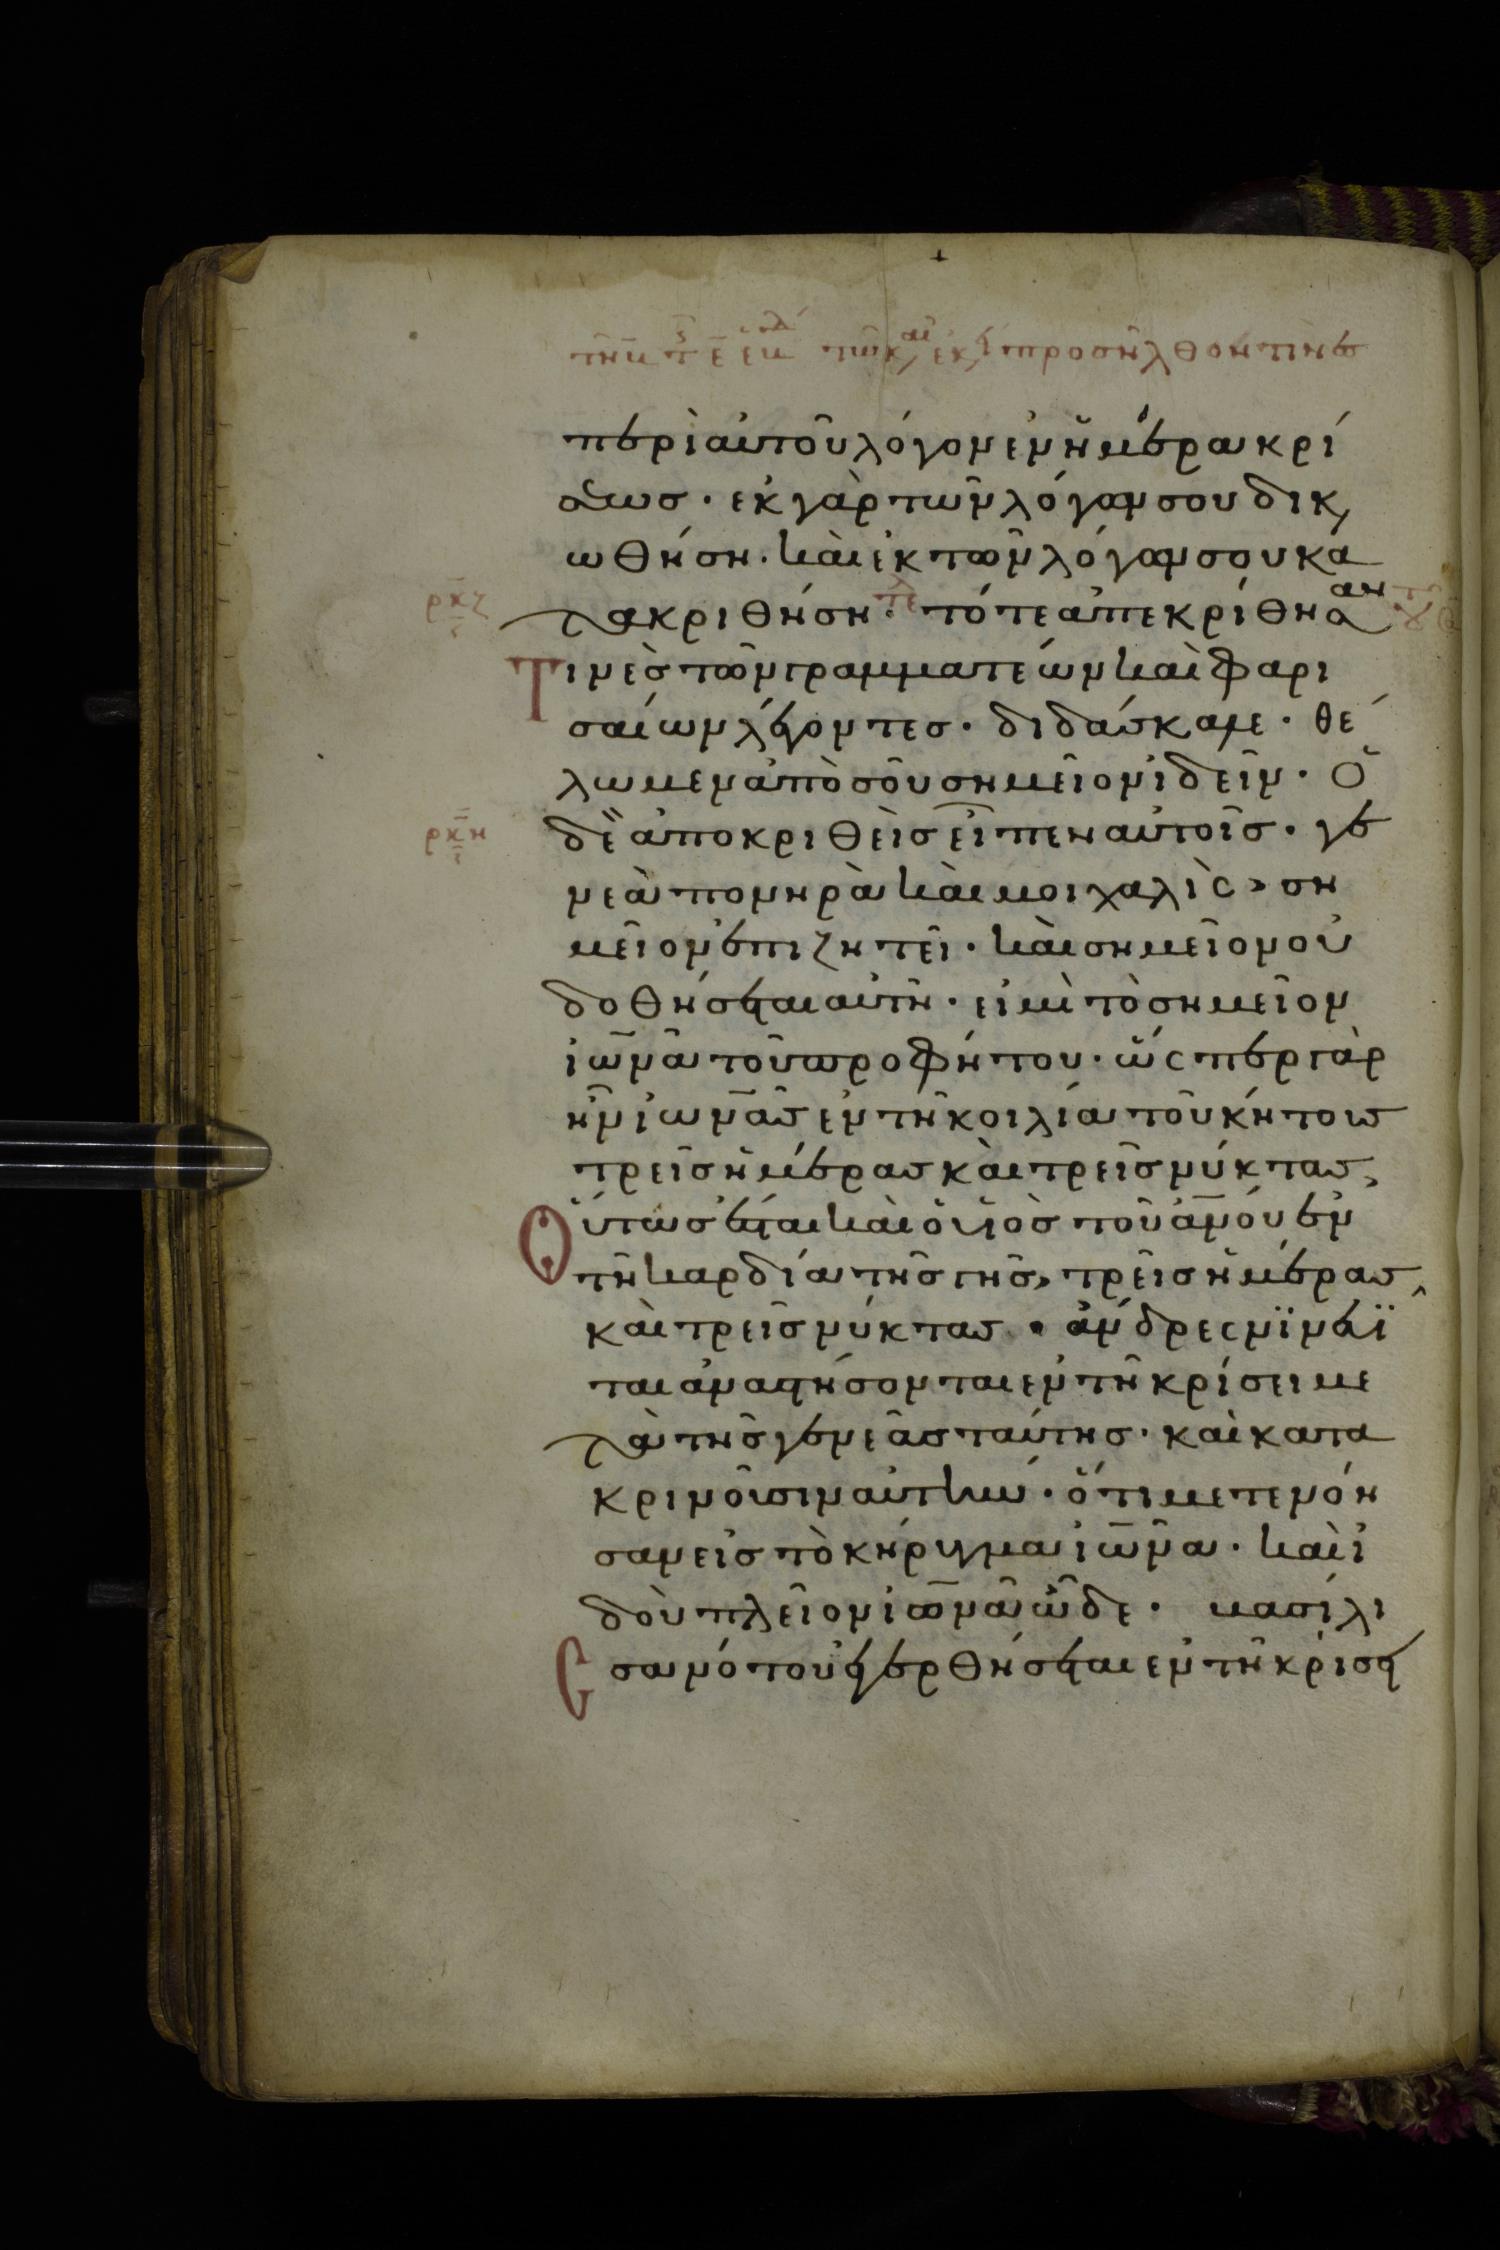 προσῆλθόν τινες
περὶ αὐτοῦ λόγον ἐν ἡμέρα κρί
σεως· ἐκ γὰρ τῶν λόγων σου δικαι
ωθήση· καὶ ἐκ τῶν λόγων σου κα
τακριθήση· τότε ἀπεκρίθησαν
ρκζ
Τινὲς τῶν γραμματέων καὶ φαρι
σαίων λέγοντες· διδάσκαλε· θέ
λωμεν ἀπὸ σοῦ σημεῖον ἰδεῖν· Ὁ
ρκη
δὲ ἀποκριθεὶς εἶπεν αὐτοῖς· γε
νεὰ πονηρὰ καὶ μοιχαλὶς, ση
μεῖον ἐπιζητεῖ· καὶ σημεῖον οὐ
δοθήσεται αὐτῆ· εἰ μὴ τὸ σημεῖον
ἰωνᾶ τοῦ προφήτου· ὥσπερ γὰρ
ἦν ἰωνᾶς ἐν τῆ κοιλία τοῦ κήτους
τρεῖς ἡμέρας καὶ τρεῖς νύκτας,
Οὕτως ἔσται καὶ ὁ υἱὸς τοῦ ἀνου ἐν
τῆ καρδία τῆς γῆς, τρεῖς ἡμέρας
καὶ τρεῖς νύκτας· ἄνδρες νϊνευῖ
ται ἀναστήσονται ἐν τῆ κρίσει με
τὰ τῆς γενεᾶς ταύτης· καὶ κατα
κρινοῦσιν αὐτήν· ὅτι μετενόη
σαν εἰς τὸ κήρυγμα ἰωνᾶ· καὶ ἰ
δοὺ πλεῖον ἰωνᾶ ὧδε· βασίλι
σα νότου ἐγερθήσεται ἐν τῆ κρίσει